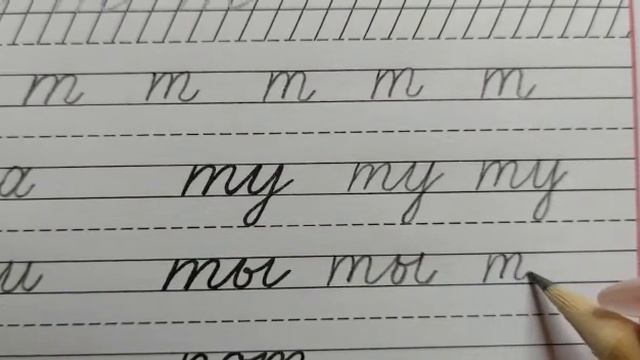 т т т т т
а ту ту ту
и ты ты т